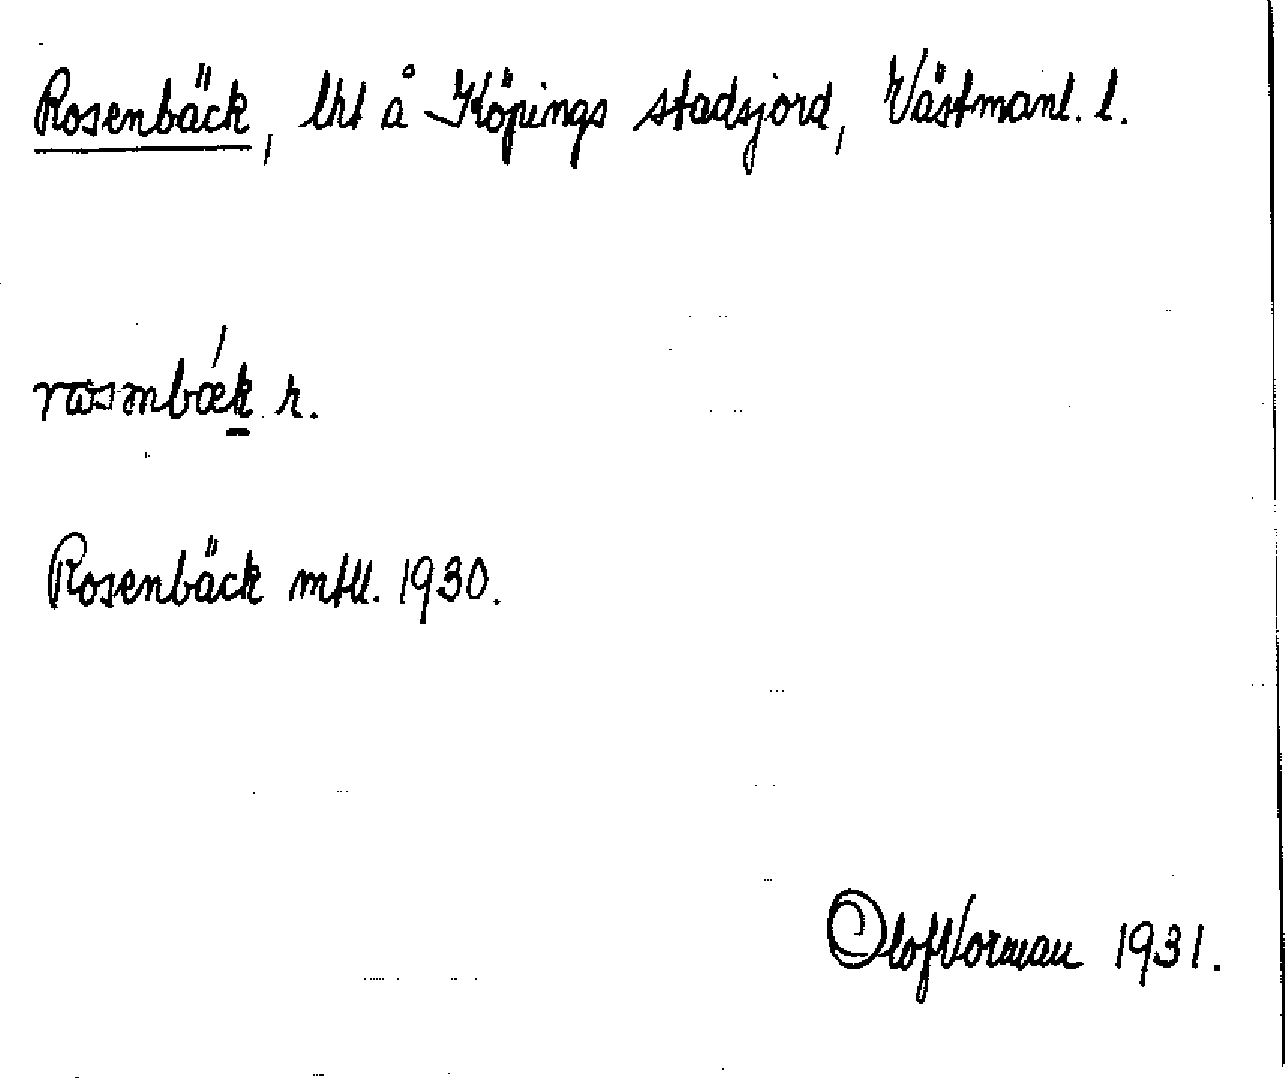 Rosenbäck, lht å Köpings stadsjord, Västmanl. l.
r.
Rosenbäck mtll. 1930.
Olof Vorman 1931.